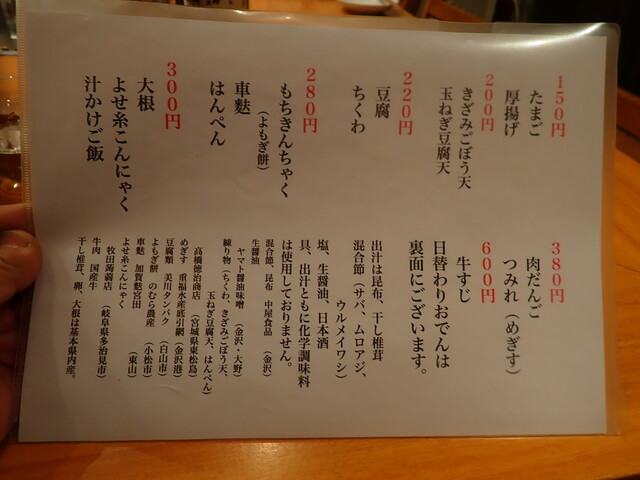 150円
たまご
厚揚げ
200円
きざみごぼう天
玉ねぎ豆腐天
220円
豆腐
ちくわ
280円
もちきんちゃく
(よもぎ餅)
車麩
はんぺん
300円
大根
よせ糸こんにゃく
汁かけご飯
380円
肉だんご
つみれ(めぎす)
600円
牛すじ
日替わりおでんは
裏面にございます。
出汁は昆布、干し椎茸
混合節(サバ、ムロアジ、
ウルメイワシ)
塩、生醤油、日本酒
具、出汁ともに化学調味料
は使用しておりません。
混合節、昆布 中屋食品 (金沢)
生醤油
ヤマト醤油味噌 (金沢・大野)
練り物(ちくわ、きざみごぼう天、
玉ねぎ豆腐天、はんぺん)
高橋徳治商店 (宮城県東松島)
めぎす 重福水産底引網(金沢港)
豆腐類 美川タンパク (白山市)
よもぎ餅 のむら農産 (小松市)
車麩 加賀麩宮田 (東山)
よせ糸こんにゃく
牧田蒟蒻店 (岐阜県多治見市)
牛肉 国産牛
干し椎茸、卵、大根は基本県内産。